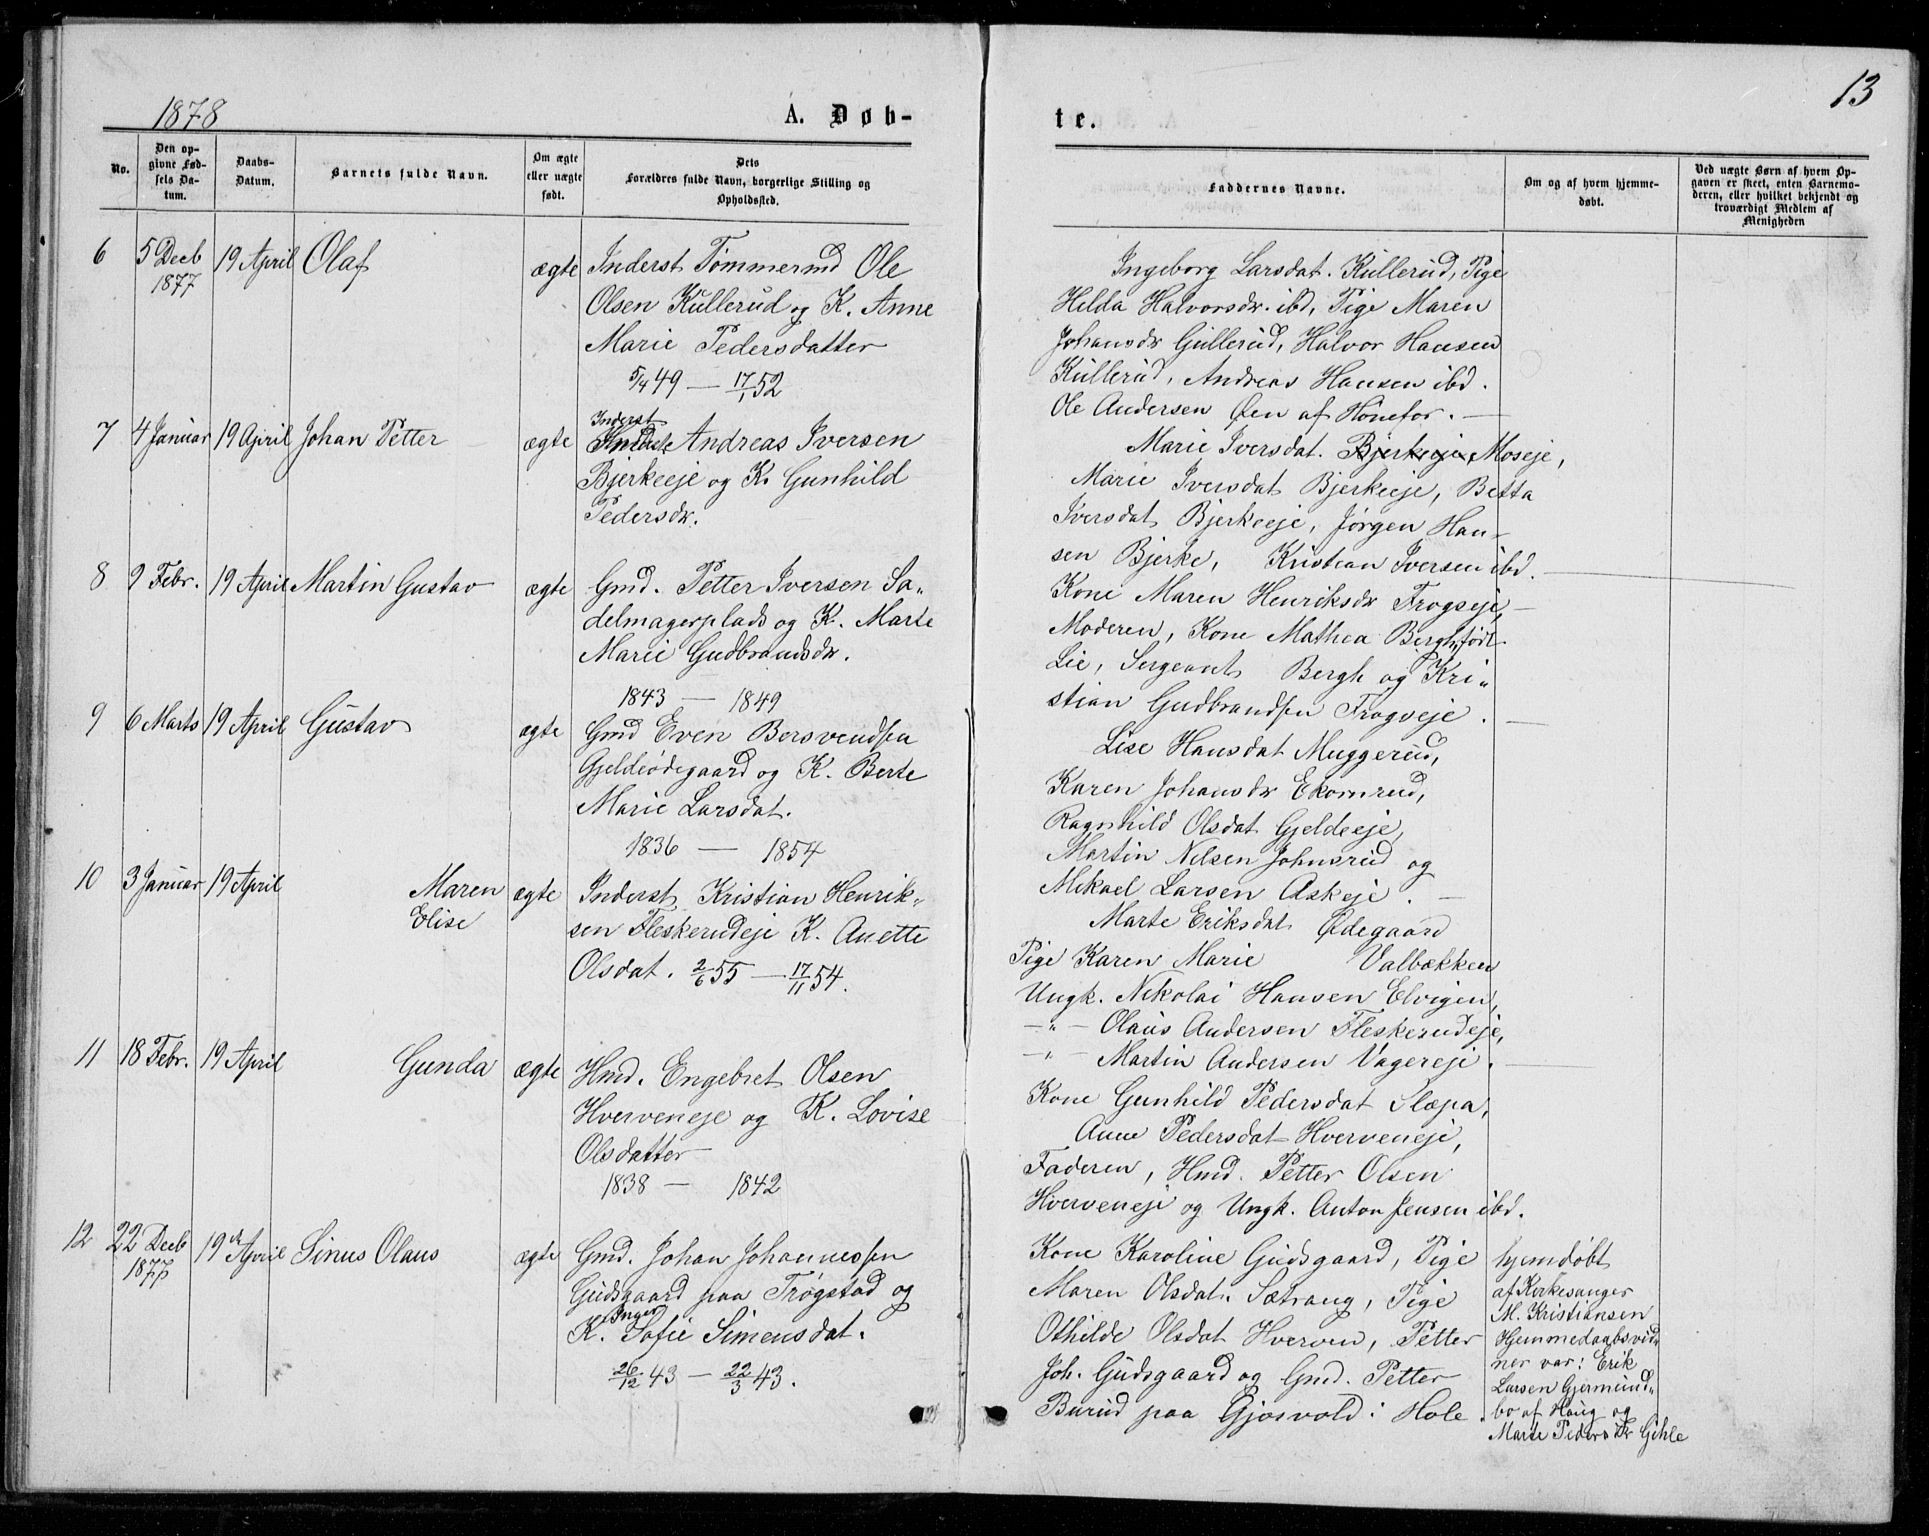 1878
A. Døb-
te.
13
No.
Den op-
givne Fød-
sels Da-
tum.
Daabs-
Datum.
Barnets fulde Navn.
Om ægte
eller uægte
født.
Dets
Forældres fulde Navn, borgerlige Stilling og
Opholdssted.
Faddernes Navne.
Om og af hvem hjemme-
døbt.
Ved uægte Børn af hvem Op-
gaven er skeet, enten Barnemo-
deren, eller hvilket bekjendt og
troværdigt Medlem af
Menigheden
6 5 Decb 19 April Olaf ægte Inderst Tømmermd Ole
1877
Olsen Kullerud og K. Anne
Marie Pedersdatter
5/4 49 — 17/1 52
Ingeborg Larsdat. Kullerud, Pige
Hilda Halvorsdr. ibd, Pige Maren
Johansdr Gullerud, Halvor Hansen
Kullerud, Andreas Hansen ibd.
Ole Andersen Øen af Hønefos. —
7 4 Januar 19 April Johan Petter ægte Inderst Andreas Iversen
Bjerkeeje og K. Gunhild
Pedersdr.
Marie Iversdat. Bjerkeeje, Moseje,
Marie Iversdat Bjerkeeje, Betta
Iversdat Bjerkeeje, Jørgen Han-
sen Bjerke, Kristian Iversen ibd.
8 9 Febr. 19 April Martin Gustav ægte Gmd. Petter Iversen Sa-
delmagerplads og K. Marte
Marie Gudbrandsdr.
1843 — 1849
Kone Maren Henriksdr Frogseje, —
Moderen, Kone Mathea Bergh, født
Lie, Sergeant Bergh og Kri-
stian Gudbrandsen Frogseje. —
9 6 Marts 19 April Gustav ægte Gmd Even Bersvendsen
Gjeldeødegaard og K. Berte
Marie Larsdat.
1836 — 1854
Lise Hansdat Muggerud,
Karen Johansdr Ekornrud,
Ragnhild Olsdat Gjeldeeje,
Martin Nilsen Johnsrud og
Mikael Larsen Askeje. —
10 3 Januar 19 April Maren ægte Inderst Kristian Henrik-
Elise
sen Fleskerudeje K. Anette
Olsdat. 2/6 55 — 17/11 54.
Marte Eriksdat Ødegaard
Pige Karen Marie Valbækken
Ungk. Nikolai Hansen Elvigen,
—"— Olaus Andersen Fleskerudeje,
—"— Martin Andersen Vagereje.
11 18 Febr. 19 April Gunda ægte Hmd. Engebret Olsen
Hverveneje og K. Lovise
Olsdatter
1838 — 1842
Kone Gunhild Pedersdat Slæpa,
Anne Pedersdat Hverveneje,
Faderen, Hmd. Petter Olsen
Hverveneje og Ungk. Anton Jensen ibd.
12 22 Decb 19de April Sinus Olaus ægte Gmd. Johan Johannessen
1877
Gudsgaard paa Trøgstad og
Inger
K. Sofie Simensdat.
26/12 43 — 22/3 43.
Kone Karoline Gudsgaard, Pige
Maren Olsdat. Sætrang, Pige
Othilde Olsdat Hverven, Petter
Joh. Gudsgaard og Gmd. Petter
Burud paa Gjøsvold i Hole.
hjemdøbt
af Kirkesanger
M. Kristiansen
Hjemmedaabsvid-
ner var: Erik
Larsen Gjermund-
bo af Haug og
Marte Pedersdr Gihle